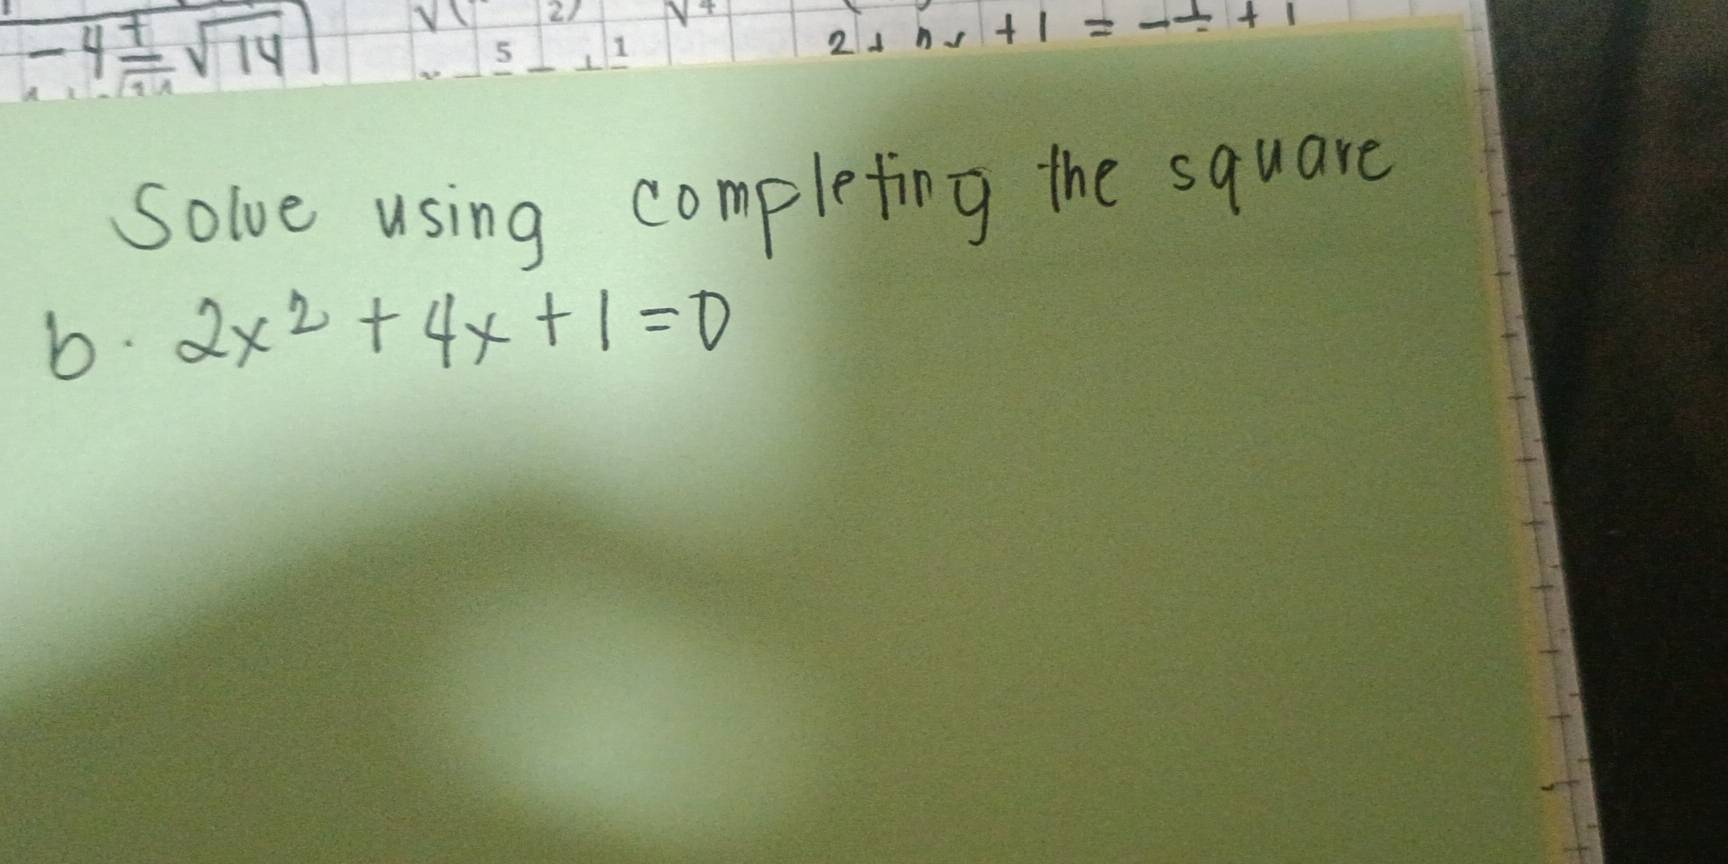 -4 ± √14
5
1
+ 1 = - 1 + 1
Solve using completing the square
b. 2x² + 4x + 1 = 0